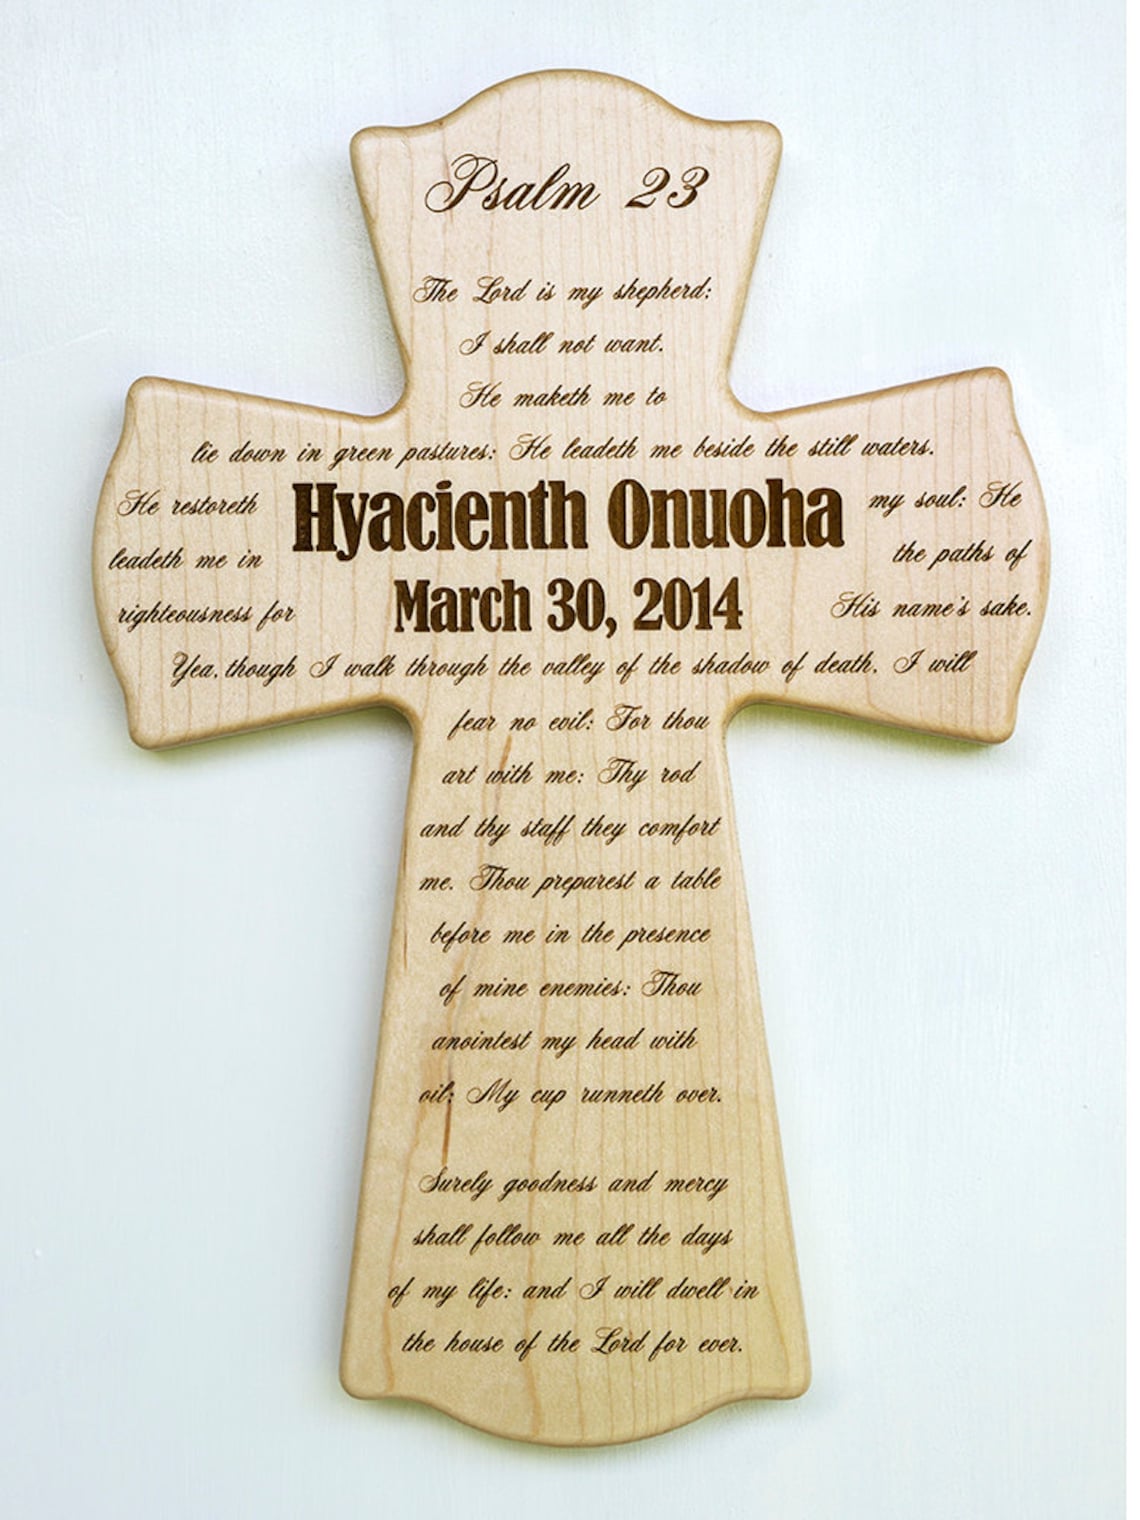 Psalm 23
The Lord is my shepherd:
I shall not want.
He maketh me to
lie down in green pastures: He leadeth me beside the still waters.
He restoreth Hyacienth Onuoha my soul: He
leadeth me in the paths of
March 30, 2014
righteousness for His name's sake.
Yea, though I walk through the valley of the shadow of death, I will
fear no evil: For thou
art with me: Thy rod
and thy staff they comfort
me. Thou preparest a table
before me in the presence
of mine enemies: Thou
anointest my head with
oil: My cup runneth over.
Surely goodness and mercy
shall follow me all the days
of my life: and I will dwell in
the house of the Lord for ever.